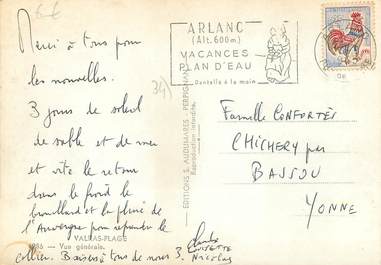 Merci à tous pour
les nouvelles.
3 jours de soleil
de sable et de mer
et vite le retour
dans le froid le
brouillard et la pluie de
l'Auvergne pour reprendre le
collier. Baisers à tous de nous 3.
Nicolas
VALRAS-PLAGE
Vue générale.
EDITIONS S. AUDUMARES - PERPIGNAN
Reproduction interdite.
ARLANC
(Alt. 600m)
VACANCES
PLAN D'EAU
Dentelle à la main
Famille CONFORTÈS
CHICHERY par
BASSOU
YONNE